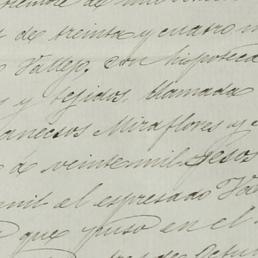 de mil
s de treinta y cuatro m
Vallejo, con hipoteca
s y tejidos, llamada
Miraflores y
o de veintemil pesos
mil el espresado Va
que puso en el